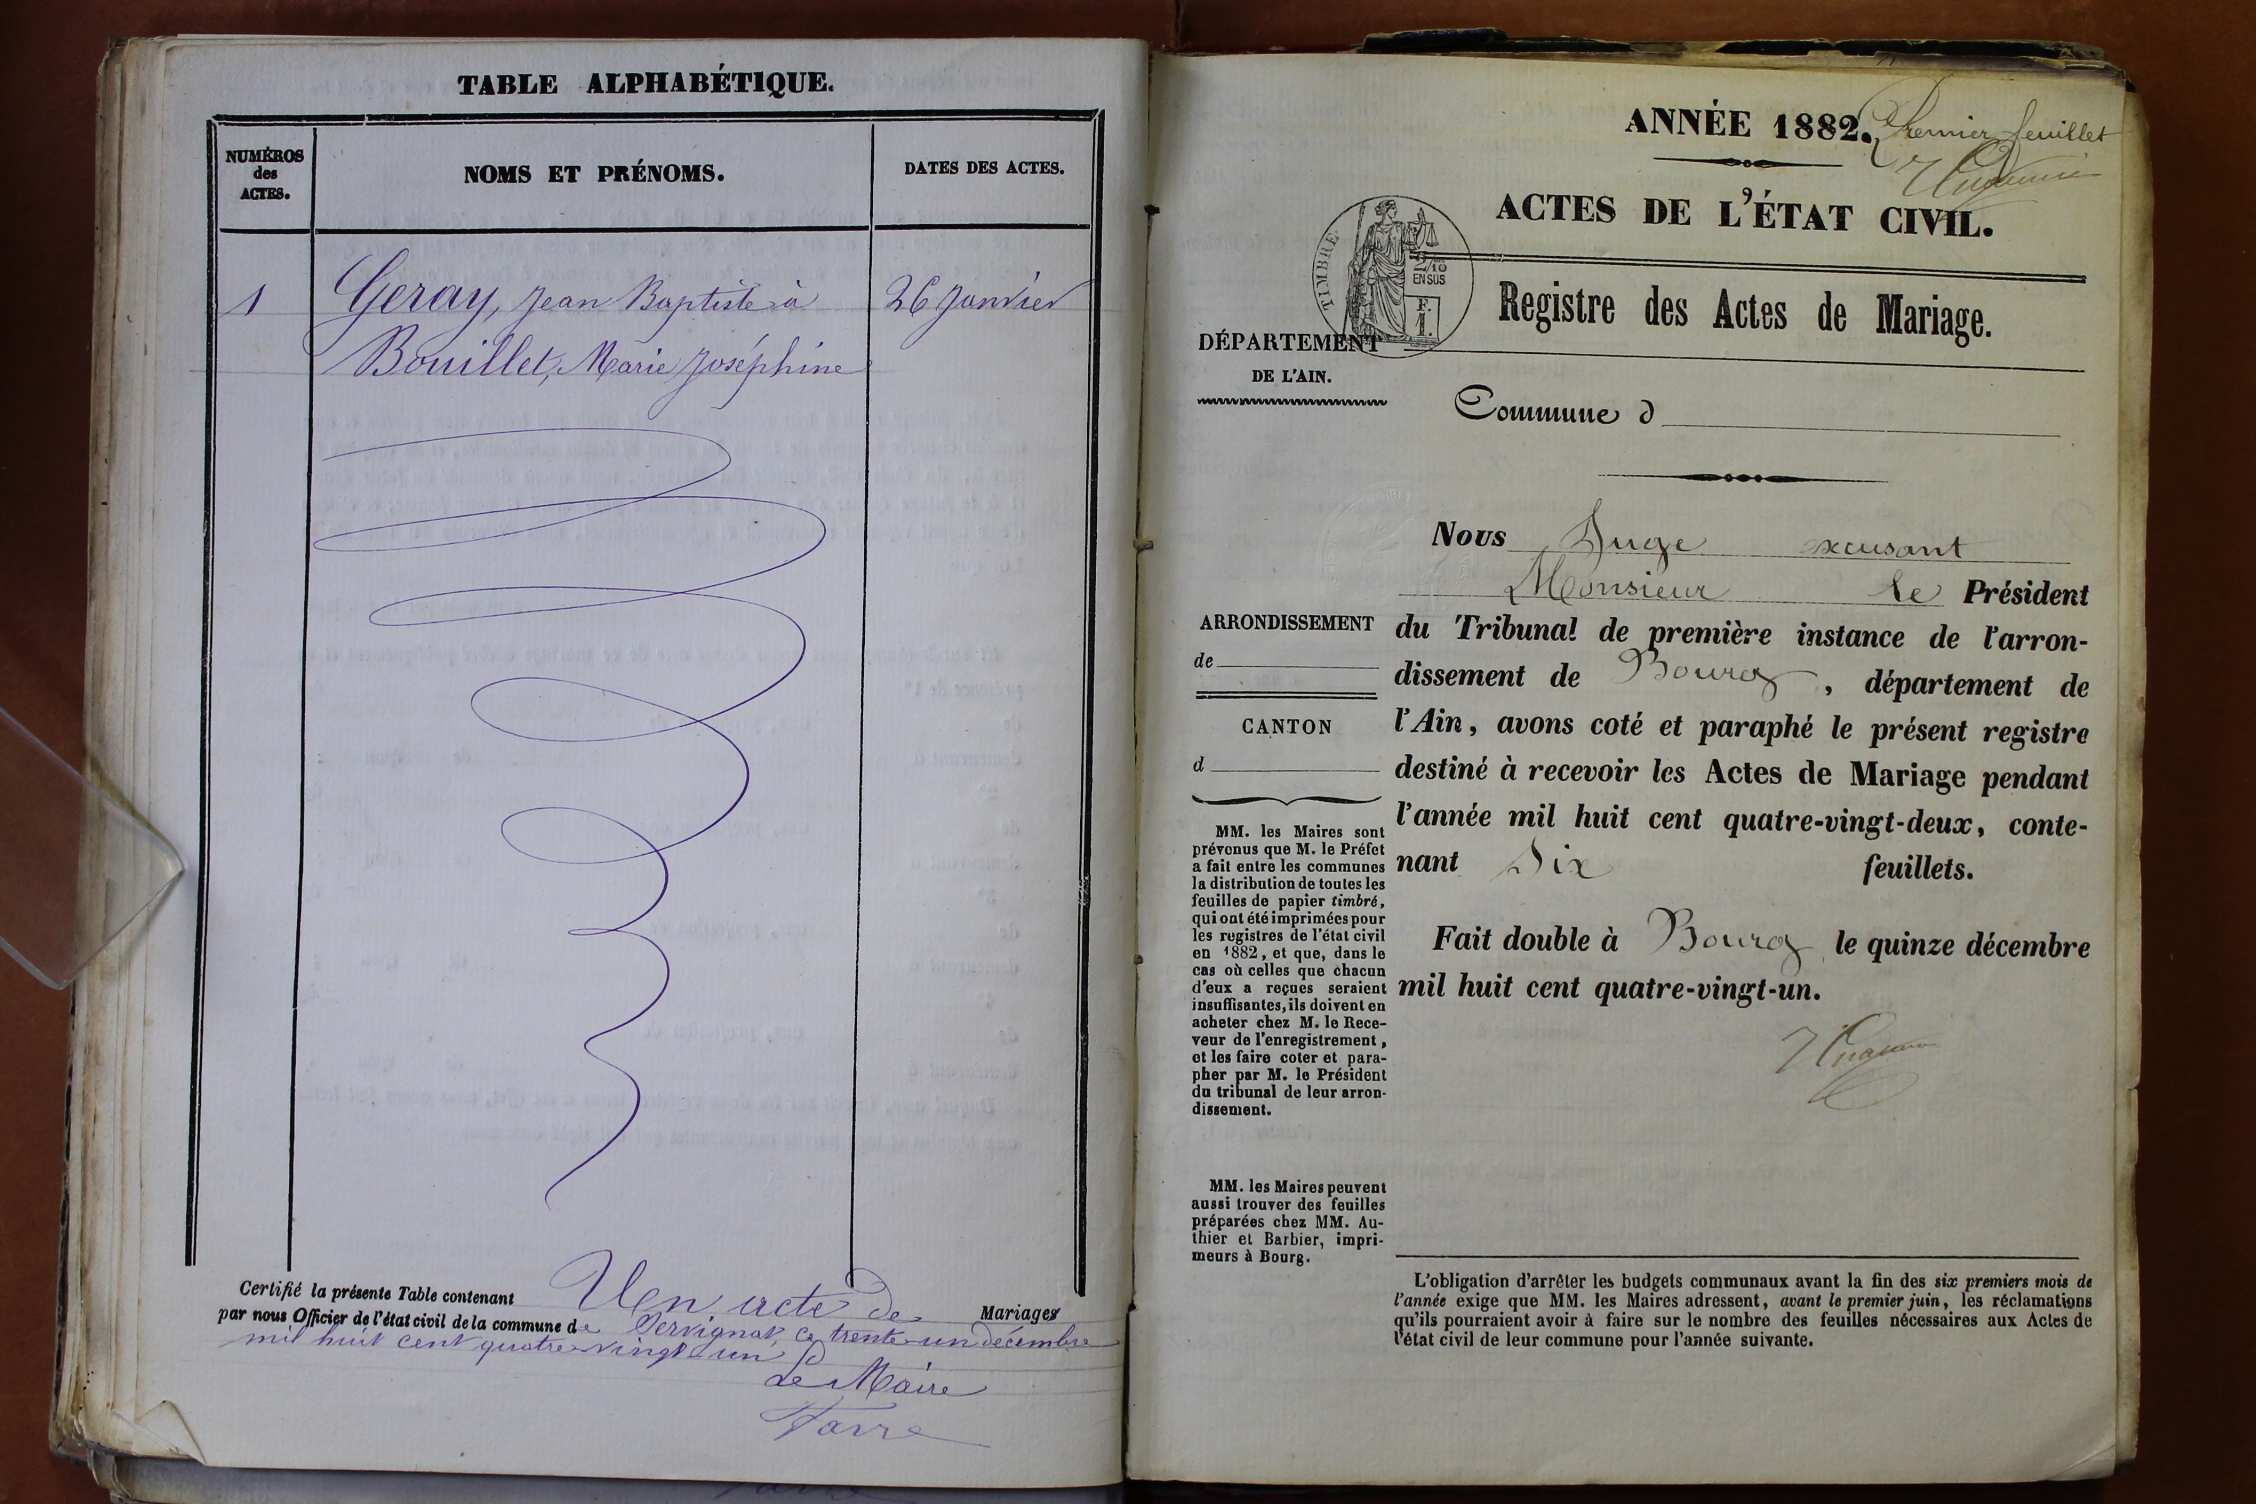 TABLE ALPHABÉTIQUE.
NUMÉROS
des
ACTES.
NOMS ET PRÉNOMS.
DATES DES ACTES.
1
Geray, Jean Baptiste à
26 Janvier
Bouillet, Marie Joséphine
Certifié la présente Table contenant Un acte de Mariages
par nous Officier de l'état civil de la commune de Servignat, ce trente-un décembre
mil huit cent quatre-vingt-un
Le Maire
Favre
ANNÉE 1882.
Premier feuillet
ACTES DE L'ÉTAT CIVIL.
TIMBRE
2/10
EN SUS
F.
1.
Registre des Actes de Mariage.
DÉPARTEMENT
DE L'AIN.
Commune d
Nous Juge excusant
Monsieur le Président
du Tribunal de première instance de l'arron-
dissement de Bourg, département de
l'Ain, avons coté et paraphé le présent registre
destiné à recevoir les Actes de Mariage pendant
l'année mil huit cent quatre-vingt-deux, conte-
nant Six feuillets.
Fait double à Bourg le quinze décembre
mil huit cent quatre-vingt-un.
ARRONDISSEMENT
de
CANTON
d
MM. les Maires sont
prévenus que M. le Préfet
a fait entre les communes
la distribution de toutes les
feuilles de papier timbré,
qui ont été imprimées pour
les registres de l'état civil
en 1882, et que, dans le
cas où celles que chacun
d'eux a reçues seraient
insuffisantes, ils doivent en
acheter chez M. le Rece-
veur de l'enregistrement,
et les faire coter et para-
pher par M. le Président
du tribunal de leur arron-
dissement.
MM. les Maires peuvent
aussi trouver des feuilles
préparées chez MM. Au-
thier et Barbier, impri-
meurs à Bourg.
L'obligation d'arrêter les budgets communaux avant la fin des six premiers mois de
l'année exige que MM. les Maires adressent, avant le premier juin, les réclamations
qu'ils pourraient avoir à faire sur le nombre des feuilles nécessaires aux Actes de
l'état civil de leur commune pour l'année suivante.